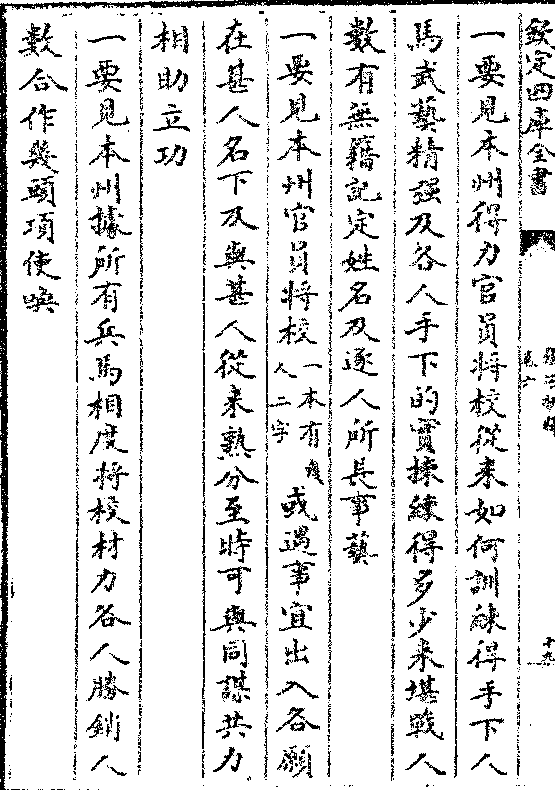 欽定四庫全書
一要見本州得力官員將校從来如何訓練得手下人
馬武藝精强及各人手下的實揀練得多少来堪戰人
數有無籍記定姓名及逐人所長事藝
一要見本州官員將校一本有度人二字或遇事宜出入各願
在甚人名下及與甚人從来熟分至時可與同謀共力
相助立功
一要見本州據所有兵馬相度將校材力各人勝銷人
數合作幾頭項使喚
十九